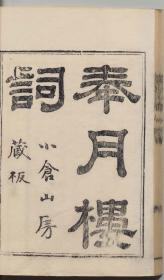 奉月樓
詞
小倉山房
藏板